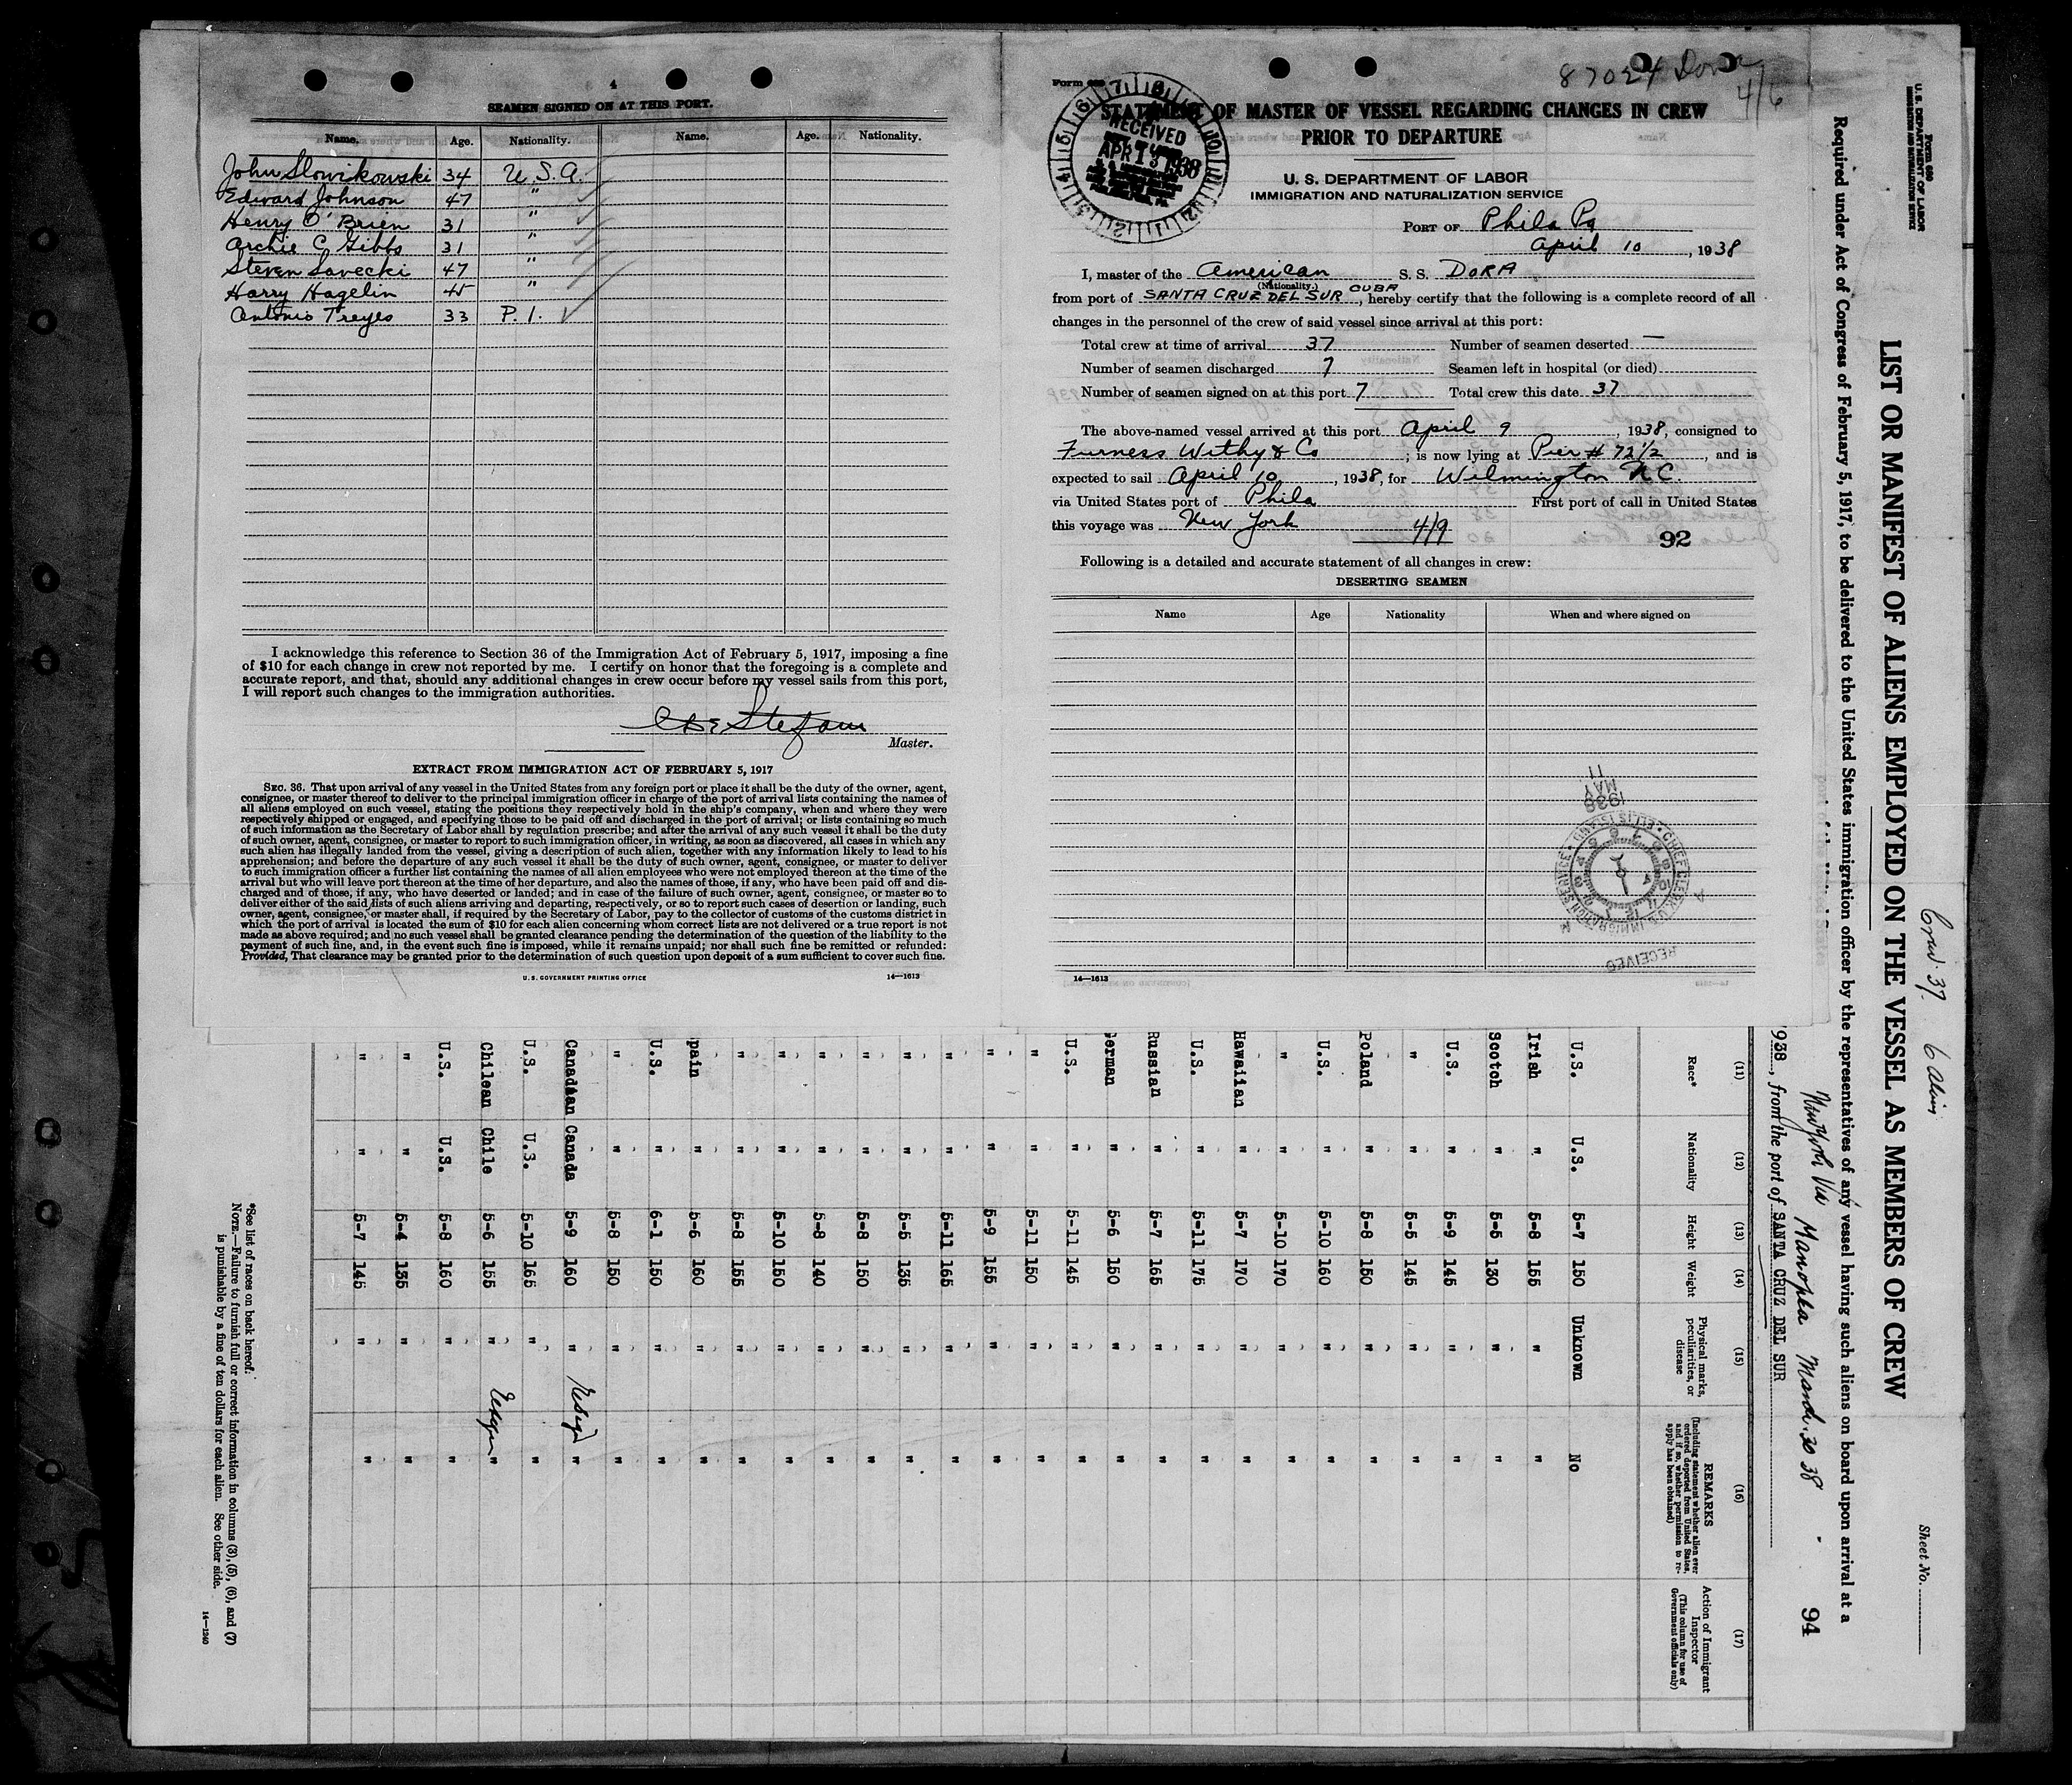 4
SEAMEN SIGNED ON AT THIS PORT.
Name. Age. Nationality. Name. Age. Nationality.
John Slowikowski 34 U.S.A.
Edward Johnson 47 "
Henry O'Brien 31 "
Archie C Gibbs 31 "
Steven Savecki 47 "
Harry Hagelin 45 "
Antonio Treyes 33 P.I.
I acknowledge this reference to Section 36 of the Immigration Act of February 5, 1917, imposing a fine
of $10 for each change in crew not reported by me. I certify on honor that the foregoing is a complete and
accurate report, and that, should any additional changes in crew occur before my vessel sails from this port,
I will report such changes to the immigration authorities.
Master.
EXTRACT FROM IMMIGRATION ACT OF FEBRUARY 5, 1917
SEC. 36. That upon arrival of any vessel in the United States from any foreign port or place it shall be the duty of the owner, agent,
consignee, or master thereof to deliver to the principal immigration officer in charge of the port of arrival lists containing the names of
all aliens employed on such vessel, stating the positions they respectively hold in the ship's company, when and where they were
respectively shipped or engaged, and specifying those to be paid off and discharged in the port of arrival; or lists containing so much
of such information as the Secretary of Labor shall by regulation prescribe; and after the arrival of any such vessel it shall be the duty
of such owner, agent, consignee, or master to report to such immigration officer, in writing, as soon as discovered, all cases in which any
such alien has illegally landed from the vessel, giving a description of such alien, together with any information likely to lead to his
apprehension; and before the departure of any such vessel it shall be the duty of such owner, agent, consignee, or master to deliver
to such immigration officer a further list containing the names of all alien employees who were not employed thereon at the time of the
arrival but who will leave port thereon at the time of her departure, and also the names of those, if any, who have been paid off and dis-
charged and of those, if any, who have deserted or landed; and in case of the failure of such owner, agent, consignee, or master so to
deliver either of the said lists of such aliens arriving and departing, respectively, or so to report such cases of desertion or landing, such
owner, agent, consignee, or master shall, if required by the Secretary of Labor, pay to the collector of customs of the customs district in
which the port of arrival is located the sum of $10 for each alien concerning whom correct lists are not delivered or a true report is not
made as above required; and no such vessel shall be granted clearance pending the determination of the question of the liability to the
payment of such fine, and, in the event such fine is imposed, while it remains unpaid; nor shall such fine be remitted or refunded:
Provided, That clearance may be granted prior to the determination of such question upon deposit of a sum sufficient to cover such fine.
U.S. GOVERNMENT PRINTING OFFICE 14—1613
87024 Dora
4/6
Form 689
STATEMENT OF MASTER OF VESSEL REGARDING CHANGES IN CREW
PRIOR TO DEPARTURE
RECEIVED
APR 13 1938
U. S. DEPARTMENT OF LABOR
IMMIGRATION AND NATURALIZATION SERVICE
PORT OF Phila Pa
April 10, 1938
I, master of the American S. S. DORA
(Nationality.)
from port of SANTA CRUZ DEL SUR CUBA, hereby certify that the following is a complete record of all
changes in the personnel of the crew of said vessel since arrival at this port:
Total crew at time of arrival 37 Number of seamen deserted —
Number of seamen discharged 7 Seamen left in hospital (or died)
Number of seamen signed on at this port 7 Total crew this date 37
The above-named vessel arrived at this port April 9, 1938, consigned to
Furness Withy & Co; is now lying at Pier # 72 1/2, and is
expected to sail April 10, 1938, for Wilmington N.C.
via United States port of Phila First port of call in United States
this voyage was New York 4/9
92
Following is a detailed and accurate statement of all changes in crew:
DESERTING SEAMEN
Name Age Nationality When and where signed on
RECEIVED
CHIEF CLERK U.S. IMMIGRATION SERVICE ELLIS ISLAND
1938
MAY
11
14—1613
Form 680
U. S. DEPARTMENT OF LABOR
IMMIGRATION AND NATURALIZATION SERVICE
Sheet No.
Crew 37 6 Alien
LIST OR MANIFEST OF ALIENS EMPLOYED ON THE VESSEL AS MEMBERS OF CREW
Required under Act of Congress of February 5, 1917, to be delivered to the United States immigration officer by the representatives of any vessel having such aliens on board upon arrival at a
port of the United States
New York Via Manopla March 30 38
94
1938, from the port of SANTA CRUZ DEL SUR
(11) (12) (13) (14) (15) (16) (17)
Race* Nationality Height Weight Physical marks, peculiarities, or disease REMARKS (Including statement whether alien ever ordered deported from United States, and if so, whether permission to re-apply has been obtained) Action of Immigrant Inspector (This column for use of Government officials only)
U.S. U.S. 5-7 150 Unknown No
Irish " 5-8 155 " "
Scotch " 5-5 130 " "
U.S. " 5-9 145 " "
" " 5-5 145 " "
Poland " 5-8 150 " "
U.S. " 5-10 160 " "
" " 5-10 170 " "
Hawaiian " 5-7 170 " "
U.S. " 5-11 175 " "
Russian " 5-7 165 " "
German " 5-6 150 " "
U.S. " 5-11 145 " "
" " 5-11 150 " "
" " 5-9 155 " "
" " 5-11 165 " "
" " 5-5 135 " "
" " 5-8 150 " "
" " 5-8 140 " "
" " 5-10 150 " "
" " 5-8 155 " "
Spain " 5-6 160 " "
U.S. " 6-1 150 " "
" " 5-8 150 " "
Canadian Canada 5-9 160 " "
U.S. U.S. 5-10 165 " "
Chilean Chile 5-6 155 " "
U.S. U.S. 5-8 160 " "
" " 5-4 135 " "
" " 5-7 145 " "
*See list of races on back hereof.
NOTE.—Failure to furnish full or correct information in columns (3), (5), (6), and (7)
is punishable by a fine of ten dollars for each alien. See other side.
14—1240